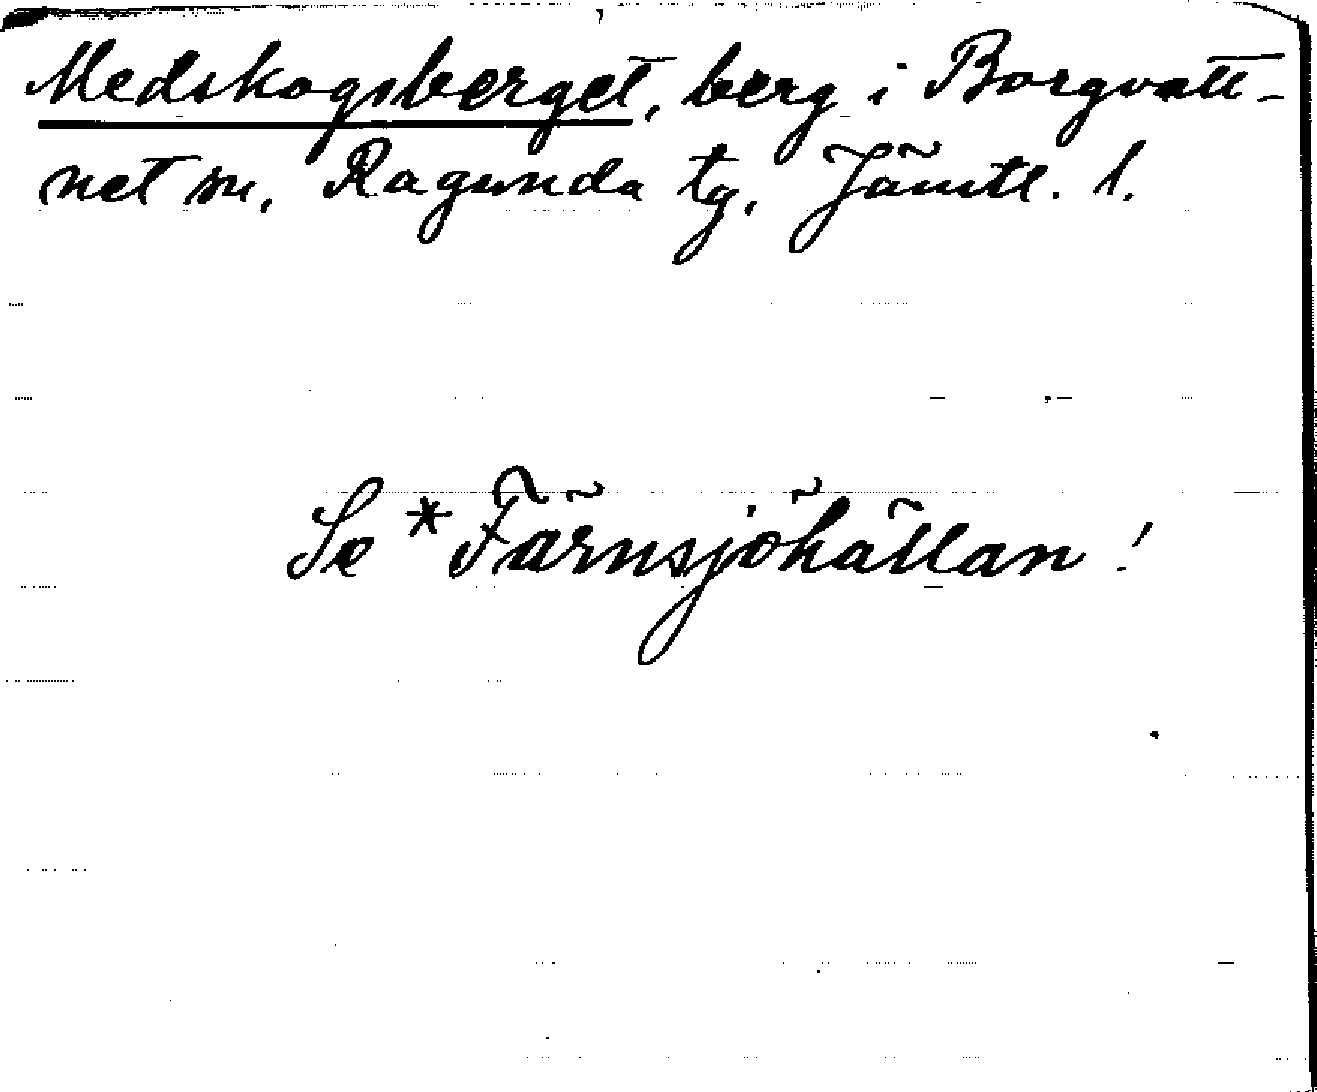 Medskogsberget, berg i Borgvatt-
net sn, Ragunda tg, Jämtl. l.
Se *Färnsjöhällan!